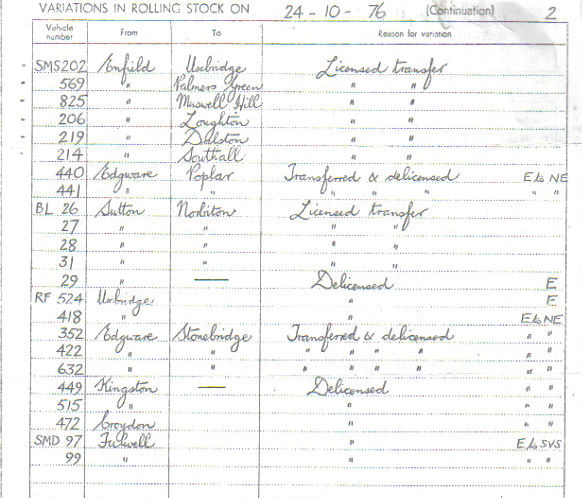 VARIATIONS IN ROLLING STOCK ON 24 - 10 - 76 (Continuation) 2
Vehicle number From To Reason for variation
SMS202 Enfield Uxbridge Licensed transfer
569 " Palmers Green " "
825 " Muswell Hill " "
206 " Loughton " "
219 " Dalston " "
214 " Southall " "
440 Edgware Poplar Transferred & delicensed E to NE
441 " " " " " " "
BL 26 Sutton Norbiton Licensed transfer
27 " " " "
28 " " " "
31 " " " "
29 " — Delicensed E
RF 524 Uxbridge " E
418 " " E to NE
352 Edgware Stonebridge Transferred & delicensed " "
422 " " " " " " " "
632 " " " " " " " "
449 Kingston — Delicensed " "
515 " " " "
472 Croydon " " "
SMD 97 Fulwell " E to SVS
99 " " " "